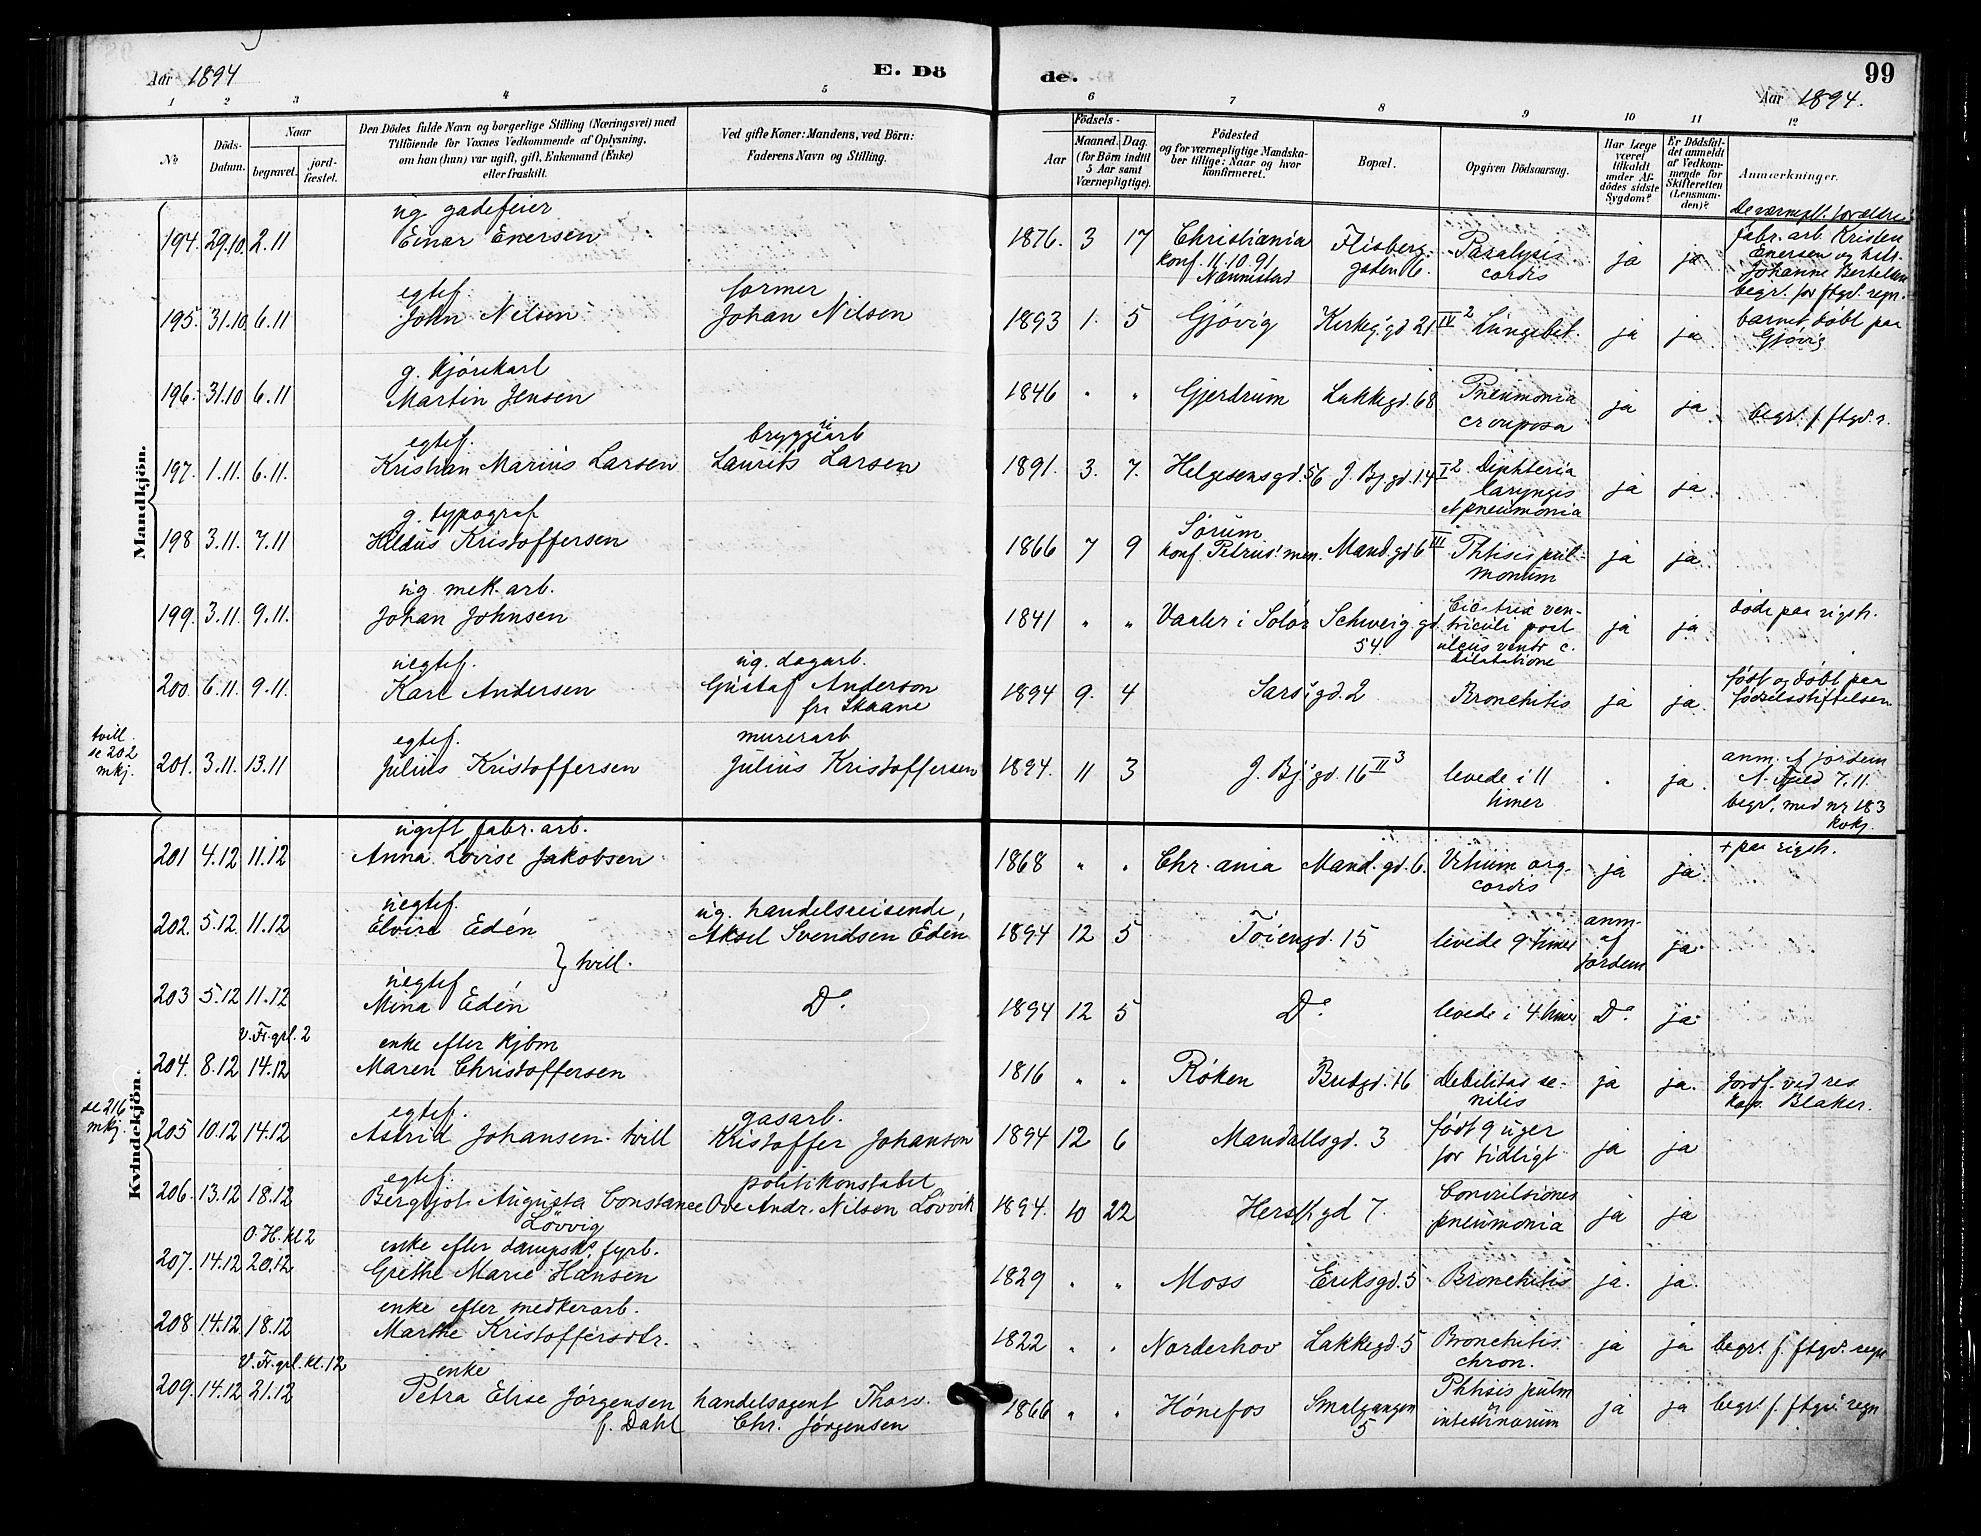 Aar 1894 E. Dö de. 99
Aar 1894.
1 2 3 4 5 6 7 8 9 10 11 12
No
Döds-Datum.
Naar
begravet.
jord-fæstet.
Den Dödes fulde Navn og borgerlige Stilling (Næringsvei) med
Tilföiende for Voxnes Vedkommende af Oplysning,
om han (hun) var ugift, gift, Enkemand (Enke)
eller fraskilt.
Ved gifte Koner: Mandens, ved Börn:
Faderens Navn og Stilling.
Födsels-
Aar
Maaned. Dag.
(for Börn indtil
5 Aar samt
Værnepligtige).
Födested
og for værnepligtige Mandska-
ber tillige: Naar og hvor
konfirmeret.
Bopæl.
Opgiven Dödsaarsag.
Har Læge
været
tilkaldt
under Af-
dödes sidste
Sygdom?
Er Dödsfal-
det anmeldt
af Vedkom-
mende for
Skifteretten
(Lensman-
den)?
Anmærkninger.
Mandkjön.
ug. gadefeier
194. 29.10. 2.11 Einar Enersen 1876. 3 17 Christiania
konf. 11.10.91
Flisberg-
gaden 6.
Paralysis
cordis
ja ja
fabr. arb. Kristen
Enersen og
Johanne Bertelsen
begr. for ftgd. regn.
egtef. former
195. 31.10 6.11 John Nilsen Johan Nilsen 1893 1. 5 Gjøvig Kirkeg. gd 21 IV 2 Lungebet. ja ja
barnet døbt paa
Gjøvig
g. kjørekarl
196. 31.10 6.11 Martin Jensen 1846 " " Gjerdrum Lakkegd. 68 Pneumonia
crouposa
ja ja. begr. f. ftgd. r.
egtef. bryggeriarb
197. 1.11. 6.11. Kristian Marius Larsen Laurits Larsen 1891. 3. 7. Helgesensgd. 56 J. Bj. gd. 14 I 2 Diphteria
laryngis
et pneumonia
ja ja.
g. typograf
198 3.11. 7.11 Hildus Kristoffersen 1866 7 9 Sørum
konf. Petrus' men. Mand. gd 6 III Phtisis pul-
monum
ja ja.
ug. mek. arb.
199. 3.11. 9.11. Johan Johnsen 1841 " " Vaaler i Solør Schweig. gd
54.
Cicatrix ven-
triculi post
ulcus ventr c.
dilatatione
ja ja. døde paa rigsh.
uegtef. ug. dagarb.
200. 6.11. 9.11. Karl Andersen Gustaf Anderson
fra Skaane
1894 9. 4 Sars' gd. 2 Bronchitis ja ja.
født og døbt paa
fødselsstiftelsen
tvill.
se 202
mkj.
egtef. murerarb
201. 3.11. 13.11 Julius Kristoffersen Julius Kristoffersen 1894. 11 3 J. Bj. gd. 16 II 3 levede i 11
timer
. ja.
anm. af jordem
7.11.
begr. med nr 183
kvkj.
Kvindekjön.
ugift fabr. arb.
201 4.12 11.12 Anna Lovise Jakobsen 1868 " " Chr.ania Mand. gd. 6. Vitium org.
cordis
ja ja. + paa rigsh.
uegtef. ug. handelsreisende,
202. 5.12 11.12 Elvira Edén Aksel Svendsen Edén 1894 12 5 Tøiengd. 15 levede 9 timer anm.
af
jordem
ja.
} tvill.
uegtef
203 5.12 11.12 Mina Edén Do 1894 12 5 Do levede i 4 timer Do ja.
V. Fr. grl. 2
enke efter kjbm
204. 8.12 14.12 Maren Christoffersen 1816 " " Røken Budgd. 16 Debilitas se-
nilis
ja ja. Jordf. ved res.
kap. Blaker.
se 216
mkj.
egtef. gasarb.
205 10.12 14.12 Astrid Johansen. tvill Kristoffer Johanson 1894 12 6 Mandallsgd. 3 født 9 uger
for tidligt
ja ja
egtef. politikonstabel
206. 13.12 18.12 Bergljot Augusta Constance Ove Andr. Nilsen Løvvik
Løvvig
1894. 10 22 Hersl. gd 7. Convulsiones
pneumonia
ja ja
O. H. kl 2
enke efter dampsk. fyrb.
207. 14.12 20.12 Grethe Marie Hansen 1829 " " Moss Eriksgd. 5 Bronchitis ja. ja.
enke efter medkerarb.
208 14.12 18.12 Marthe Kristoffersdtr. 1822 " " Norderhov Lakkegd. 5 Bronchitis
chron.
ja ja begr. f. ftgd. regn
V. Fr. grl. kl. 12
enke
209. 14.12 21.12 Petra Elise Jørgensen
f. Dahl
handelsagent Thorv.
Chr. Jørgensen
1866 " " Hønefos Smalgangen
5
Phtisis pulm
intestinarum
ja ja begr. f. ftgd. regn